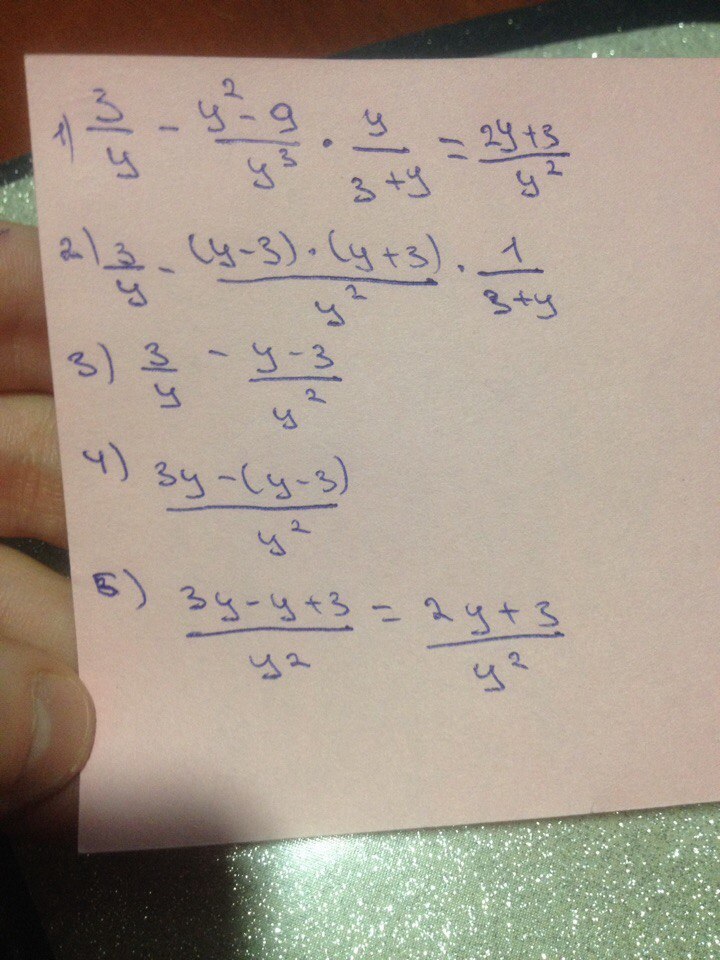 1) 3/y - (y² - 9)/y³ · y/(3+y) = (2y+3)/y²
2) 3/y - ((y-3)·(y+3))/y² · 1/(3+y)
3) 3/y - (y-3)/y²
4) (3y-(y-3))/y²
5) (3y-y+3)/y² = (2y+3)/y²